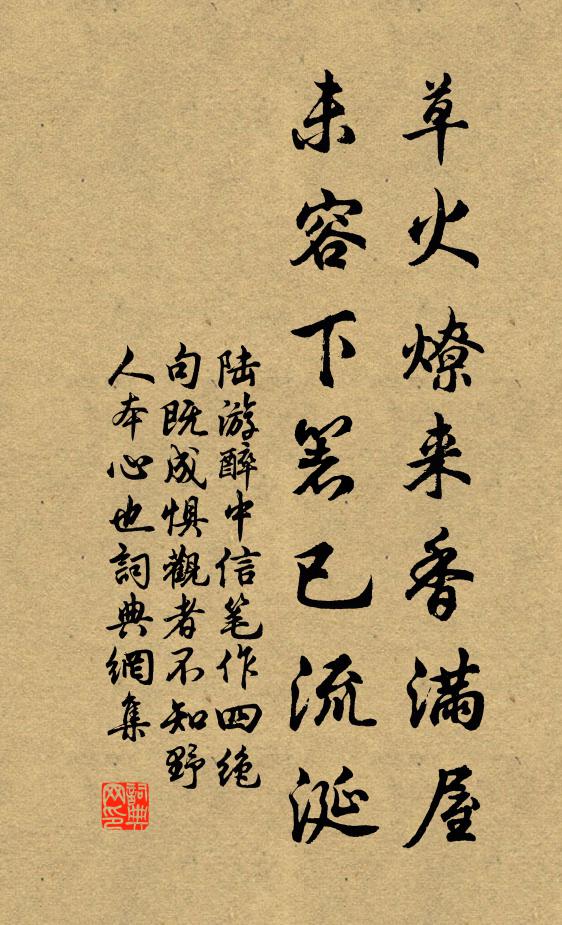 草火燎来香满屋
未容下箸已流涎
陆游醉中信笔作四绝
句既成惧觀者不知野
人本心也詞典網集
詞典
网印